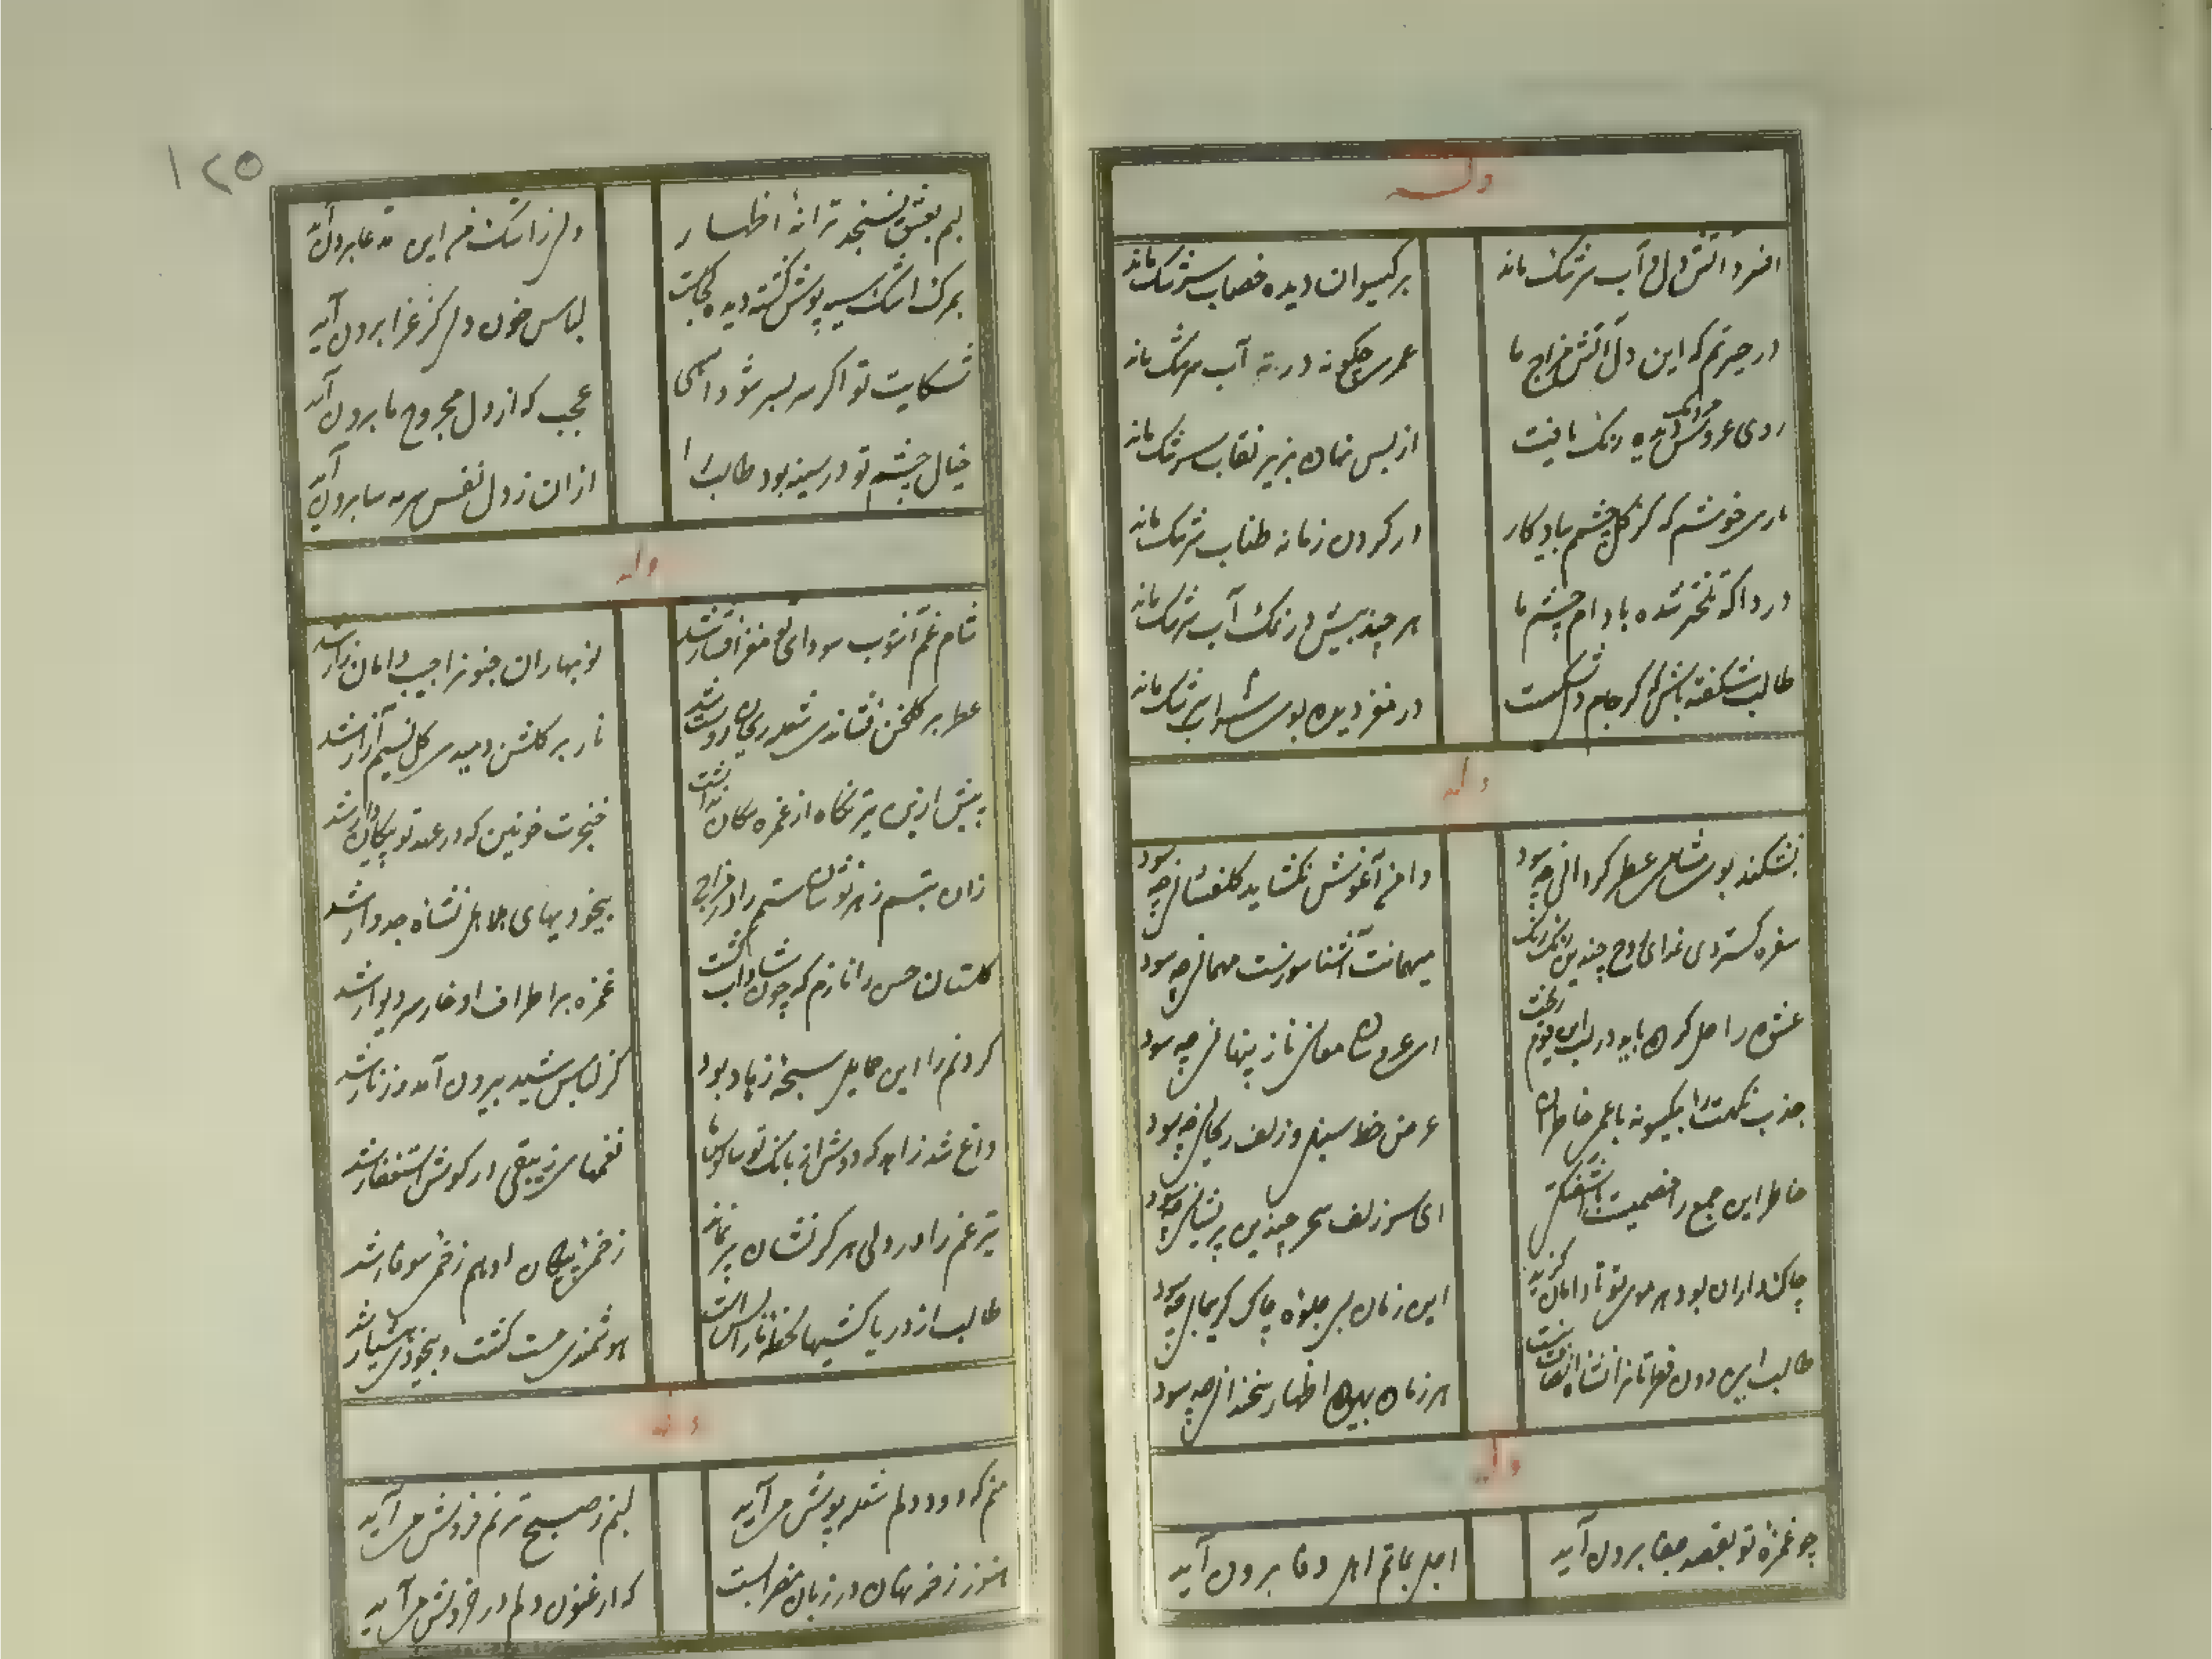 وله
افسرد آتش دل و آب سرشک ماند
بر کیسوان دیده خضاب سرشک ماند
در حیرتم که این دل آتش مزاج ما
عمری چکونه در ته آب سرشک ماند
روی عروس دیده رنک یافت
از بس نمان بزیر نقاب سرشک ماند
باری خوشم که کز کل چشم یادکار
در کردن زمانه طناب سرشک ماند
دردا که تلختر شده بادام چشم ما
هر چند بیش در نمک آب سرشک ماند
طالب شکفته باش که کر جام دل شکست
در مغز دیده بوی شراب سرشک ماند
وله
نشکند بوی مشامی عطر کردانی چه سود
دامن آغوش نکشاید کلفشانی چه سود
سفره کستردی غذای روح چندین رنک رنک
میهمانت آشنا سوزست مهمانی چه سود
عشوه را حل کرده باید در لب این قوم ریخت
ای عروسان معانی ناز پنهانی چه سود
جذب نکهت را یکیسو نه با غم خاطران
عرض خط سنبل و زلف ریحانی چه سود
خاطر این جمع را آشفتکی
ای سر زلف سحر چندین پریشانی چه سود
چاکداران بود هر موی تو تا دامان کزید
این زمان بی جلوه چاک کریبانی چه سود
طالب این دون فطرتانرا نشأه انصاف نیست
هر زمان بیهده اظهار سخندانی چه سود
وله
چو غمزهٔ تو بقصد جفا برون آید
اجل بماتم اهل وفا برون آید
۱۲۵
لبم بعشق نسنجد ترانهٔ اظهار
ولی ز اشک من این مدعا برون آید
بمرک اشک سیه پوش کشته دیده کجاست
لباس خون دل کز عزا برون آید
شکایت تو اکر سر بسر شود آهی
عجب که از دل مجروح ما برون آید
خیال چشم تو در سینه بود طالب را
از ان ز دل نفس سرمه سا برون آید
وله
شام غم آشوب سودای تو مغز افشار شد
نو بهاران جنونرا جیب و دامان زار شد
عطر بر کلخن فشاندی شعله ریحان دوست شد
نار بر کلشن دمیدی کل نسیم آزار شد
پیش ازین تیر نکاه از غمزه پیکان نداشت
خنجرت خونین که در عهد تو پیکان دار شد
زان تبسم زهر نوشان ستم را در مزاج
بیخودیهای هلاهل نشاه جدوار شد
کلستان حسن را نازم که چون شاداب کشت
غمزه بر اطراف او خار سر دیوار شد
کردنم را این حمایل سبحهٔ زهاد بود
کز لباس شید بیرون آمد و زنار شد
داغ شد زاهد که دوش از بانک ناقوس ما
نغمهای زیبقی در کوشش استغفار شد
تیر غم را در دلی هرکز نشان پر نماند
زخم پیکان او هم زخم سوفار شد
طالب از دریا کشیها لحظهٔ ناراست
هوشمندی مست کشت و بیخودی هشیار شد
وله
منم که دود دلم شعله پوش می آید
لبم ز صبح ترنم خروش می آید
هنوز زخمه نهان در زبان مضراب است
که ارغنون دلم در خروش می آید